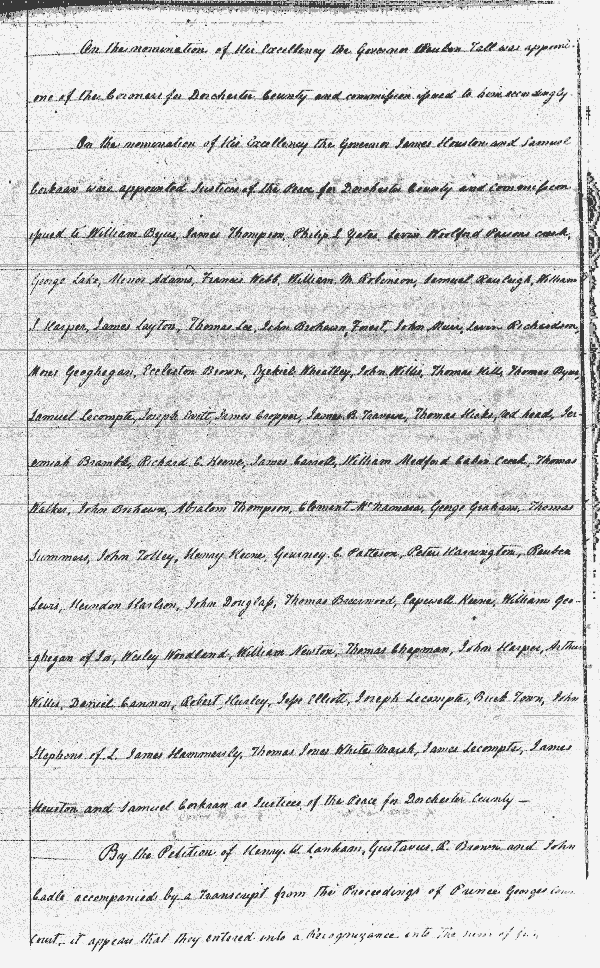 On the nomination of His Excellency the Governor Reuben Tall was appoint
one of the Coroners for Dorchester County and commission issued to him accordingly.
On the nomination of His Excellency the Governor James Houston and Samuel
Corkran were appointed Justices of the Peace for Dorchester County and commission
issued to William Byus, James Thompson, Philip L Yates, Levin Woolford Parsons creek,
George Lake, Minos Adams, Francis Webb, William M. Robinson, Samuel Rawleigh, William
J Harper, James Layton, Thomas Lee, John Brohawn Forest, John Muir, Levin Richardson,
Moses Geoghegan, Eccleston Brown, Ezekiel Wheatley, John Willis, Thomas Hill, Thomas Byus,
Samuel Lecompte, Joseph Ennalls, James Cropper, James B. Travers, Thomas Hicks, red head, Jer-
emiah Bramble, Richard C. Keene, James Carroll, William Medford Cabin Creek, Thomas
Walker, John Brohawn, Absalom Thompson, Clement McNamara, George Graham, Thomas
Summers, John Tolley, Henry Keene, Gourney C. Pattison, Peter Harrington, Reuben
Lewis, Herndon Harlson, John Douglass, Thomas Breerwood, Capewell Keene, William Geo-
-ghegan of Jas, Wesley Woodland, William Newton, Thomas Chapman, John Harper, Arthur
Willis, Daniel Cannon, Robert Hurley, Jesse Elliott, Joseph Lecompte, Buck Town, John
Stephens of L. James Hammersly, Thomas Jones White Marsh, James Lecompte, James
Houston and Samuel Corkran as Justices of the Peace for Dorchester County —
By the Petition of Henry U. Lanham, Gustavus R. Brown and John
Eadle accompanied by a Transcript from the Proceedings of Prince Georges Coun
Court, it appears that they entered into a Recognizance into the sum of